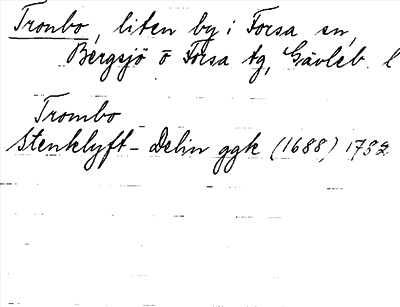 Trombo, liten by i Forsa sn,
Bergsjö o Forsa tg, Gävleb. l
Trombo
Stenklyft - Delin ggk (1688) 1732